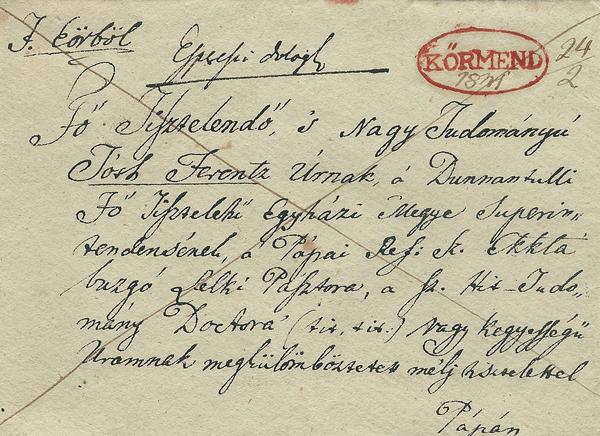 J. körből
KÖRMEND
24
2
Fő Tisztelendő, 's Nagy Tudományú
Tóth Ferentz Úrnak, a Dunnantulli
Fő Tiszteletű Egyházi Megye Superin„
tendensének, a Pápai Ref: Sz. Ekkla
buzgó Lelki Pásztora, a Sz. Hit-Tudo„
mány Doctora (tit, tit:) Nagy kegyességű
Uramnak megkülömböztetett mély tisztelettel
Pápán